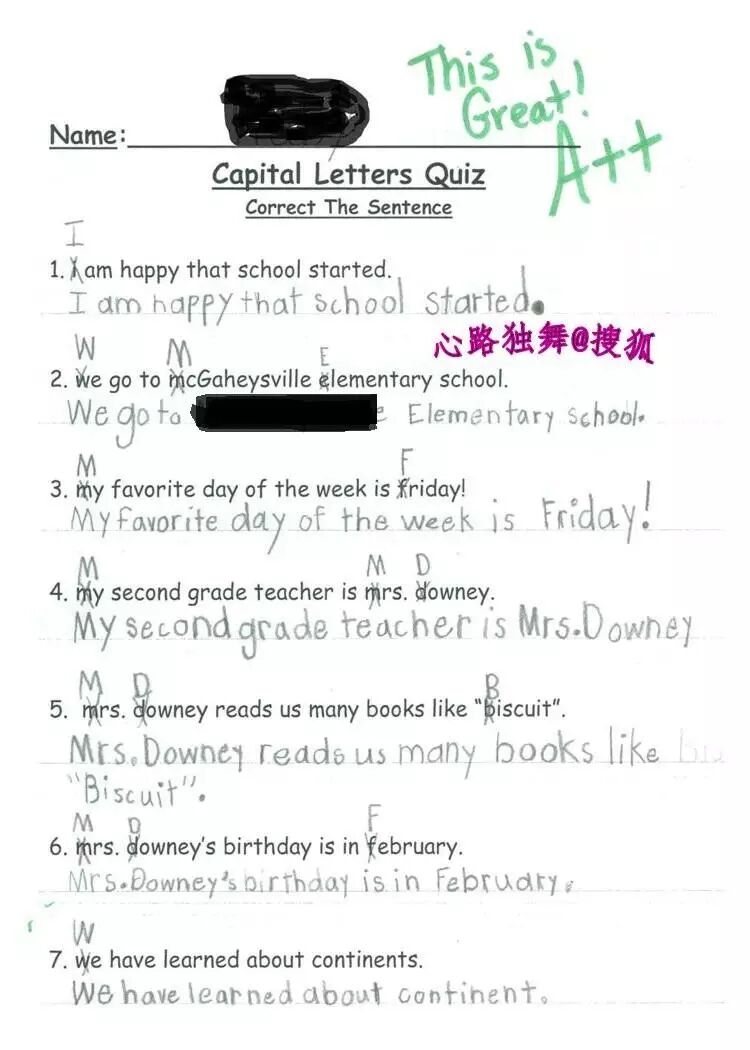 This is
Great!
A++
Name:
Capital Letters Quiz
Correct The Sentence
I
1. i am happy that school started.
I am happy that school started.
心路独舞@搜狐
W M E
2. we go to mcGaheysville elementary school.
We go to e Elementary school.
M F
3. my favorite day of the week is friday!
My favorite day of the week is Friday!
M M D
4. my second grade teacher is mrs. downey.
My second grade teacher is Mrs. Downey
M D B
5. mrs. downey reads us many books like “biscuit”.
Mrs. Downey reads us many books like
"Biscuit".
M D F
6. mrs. downey’s birthday is in february.
Mrs. Downey's birthday is in February.
W
7. we have learned about continents.
We have learned about continent.